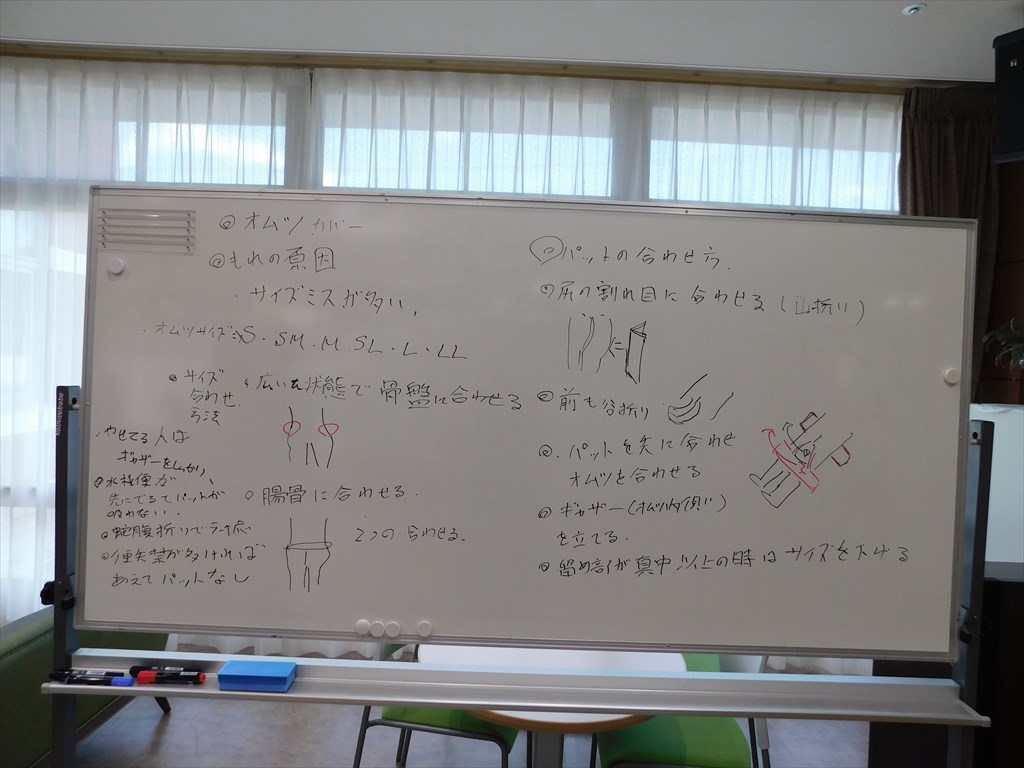 ◎オムツカバー
◎もれの原因
・サイズミスが多い。
・オムツサイズ⇒S・SM・M・SL・L・LL
◎サイズ
合わせ
方法
広いた状態で骨盤に合わせる
・やせてる人は
ギャザーをしっかり
◎水様便が
先にでるてパットが
吸わない。
○腸骨に合わせる。
◎蛇腹折りで対応
2つの合わせる。
◎便失禁が多ければ
あえてパットなし
◎パットの合わせ方.
◎尻の割れ目に合わせる(山折り)
◎前も谷折り
◎.パットを先に合わせ
オムツを合わせる
◎ギャザー(オムツ内側)
を立てる.
◎留め部が真中以上の時はサイズを下げる